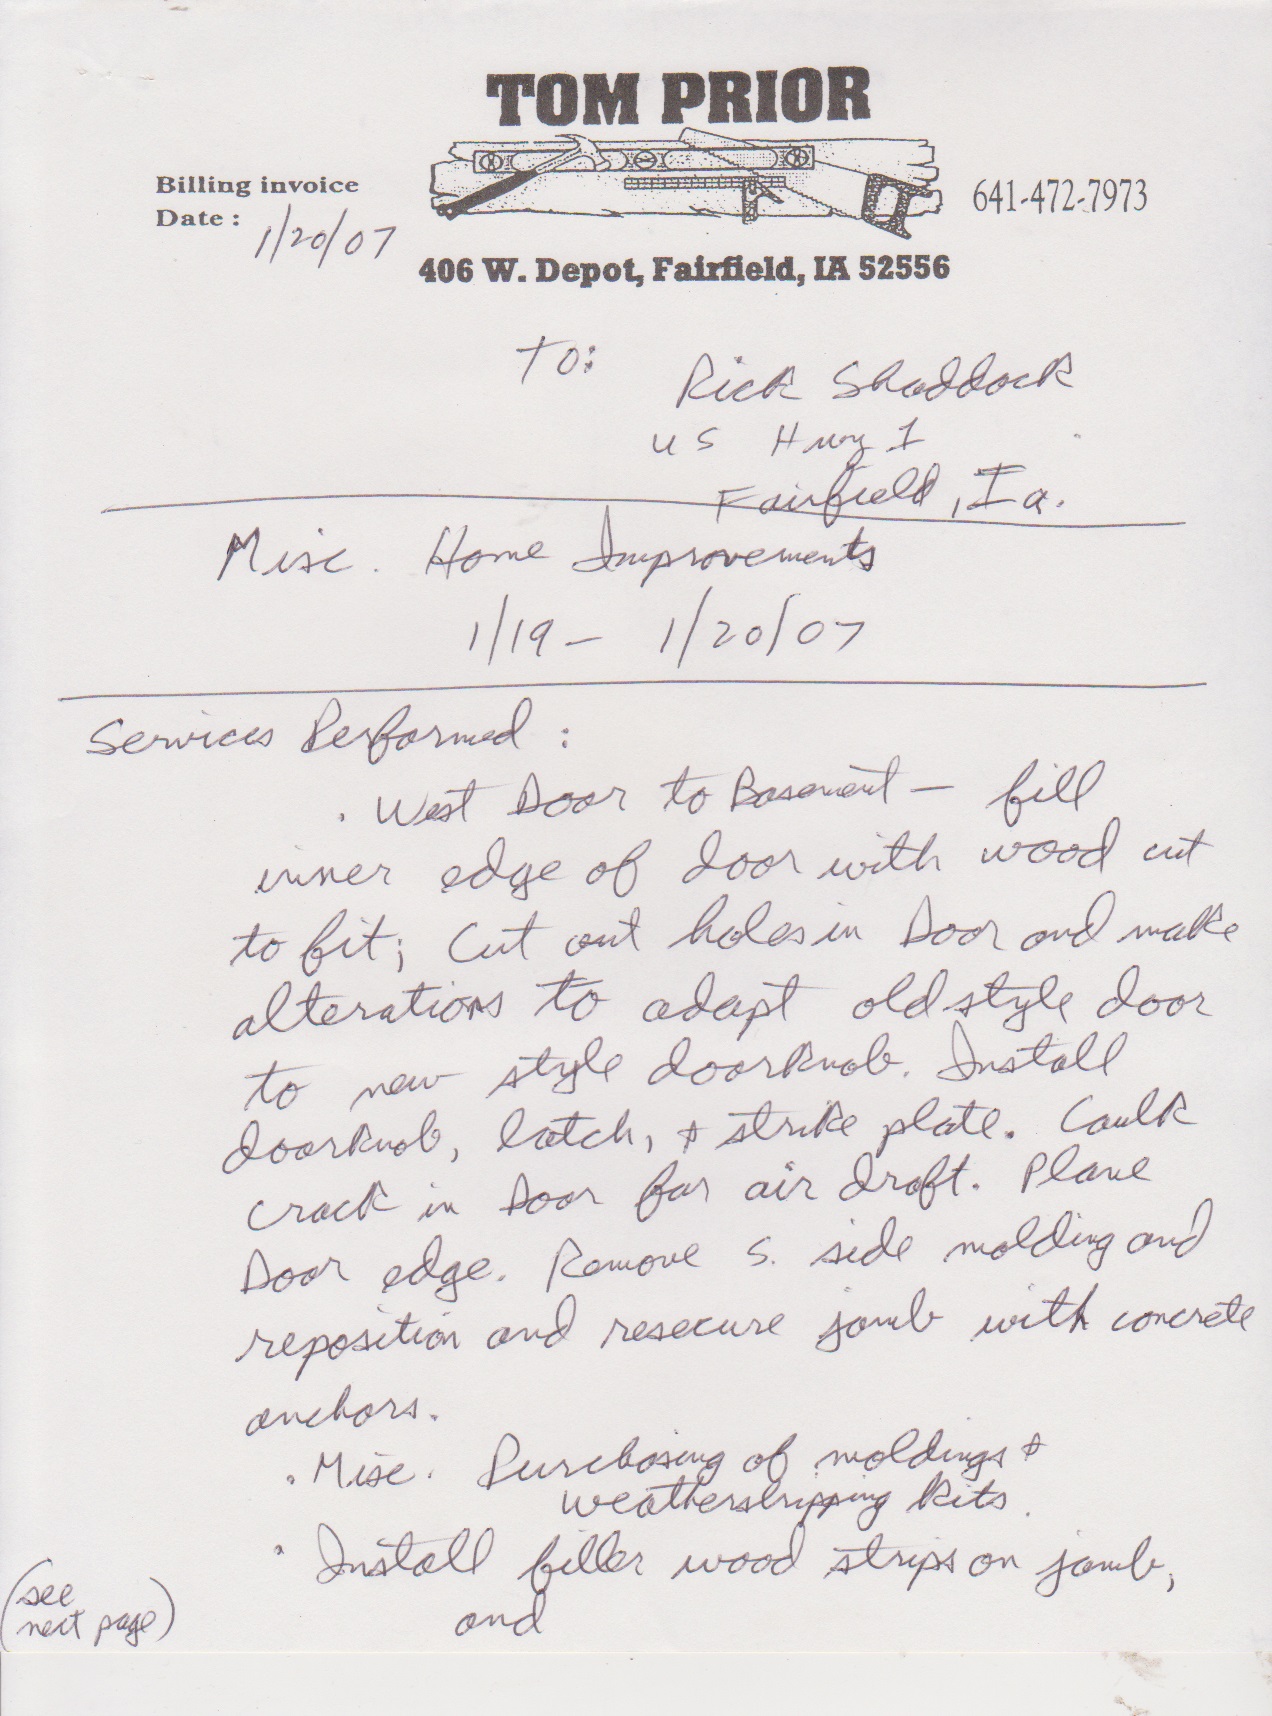 TOM PRIOR
Billing invoice
Date : 1/20/07
641-472-7973
406 W. Depot, Fairfield, IA 52556
To:
Rick Shaddock
US Hwy 1
Fairfield, Ia.
Misc. Home Improvements
1/19 - 1/20/07
Services Performed :
. West Door to Basement - fill
inner edge of door with wood cut
to fit; Cut out holes in Door and make
alterations to adapt old style door
to new style doorknob. Install
doorknob, latch, & strike plate. Caulk
crack in Door for air draft. Plane
Door edge. Remove S. side molding and
reposition and resecure jamb with concrete
anchors.
. Misc. Purchasing of moldings &
weatherstripping kits.
. Install filler wood strips on jamb,
and
(see
next page)